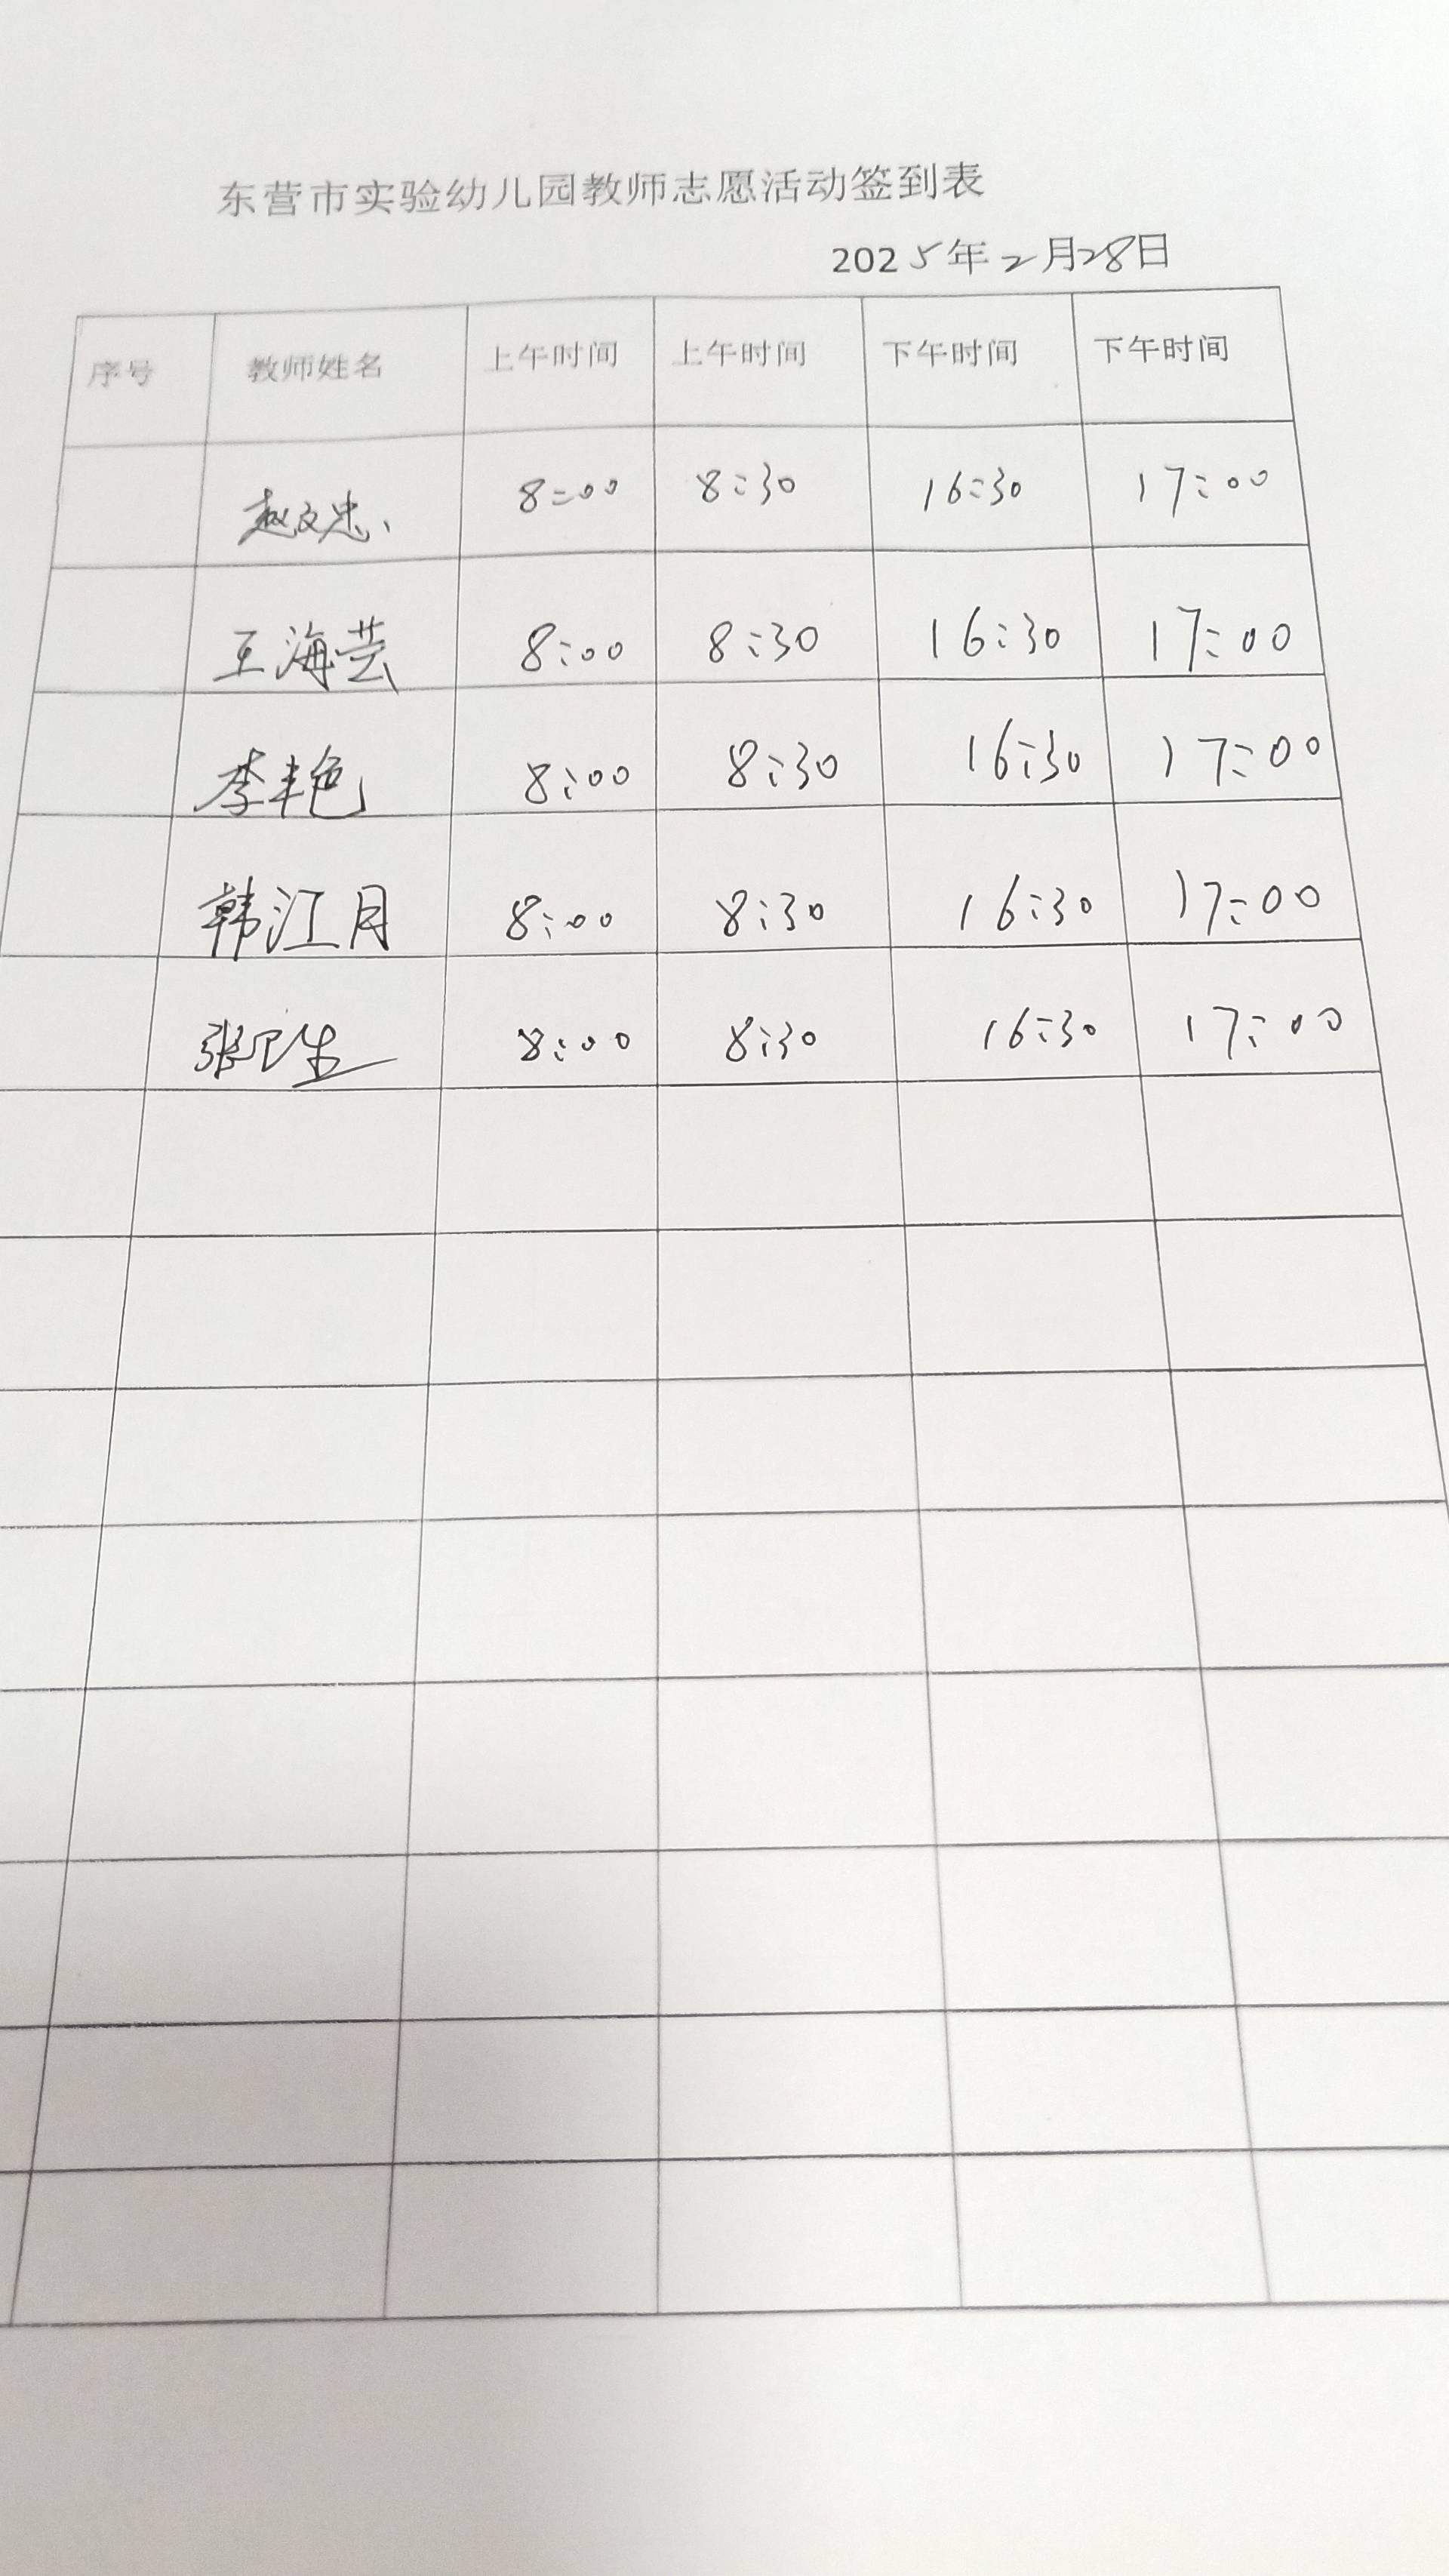 东营市实验幼儿园教师志愿活动签到表
2025年2月28日
序号 教师姓名 上午时间 上午时间 下午时间 下午时间
赵文忠、 8:00 8:30 16:30 17:00
王海芸 8:00 8:30 16:30 17:00
李丰艳 8:00 8:30 16:30 17:00
韩江月 8:00 8:30 16:30 17:00
张卫生 8:00 8:30 16:30 17:00